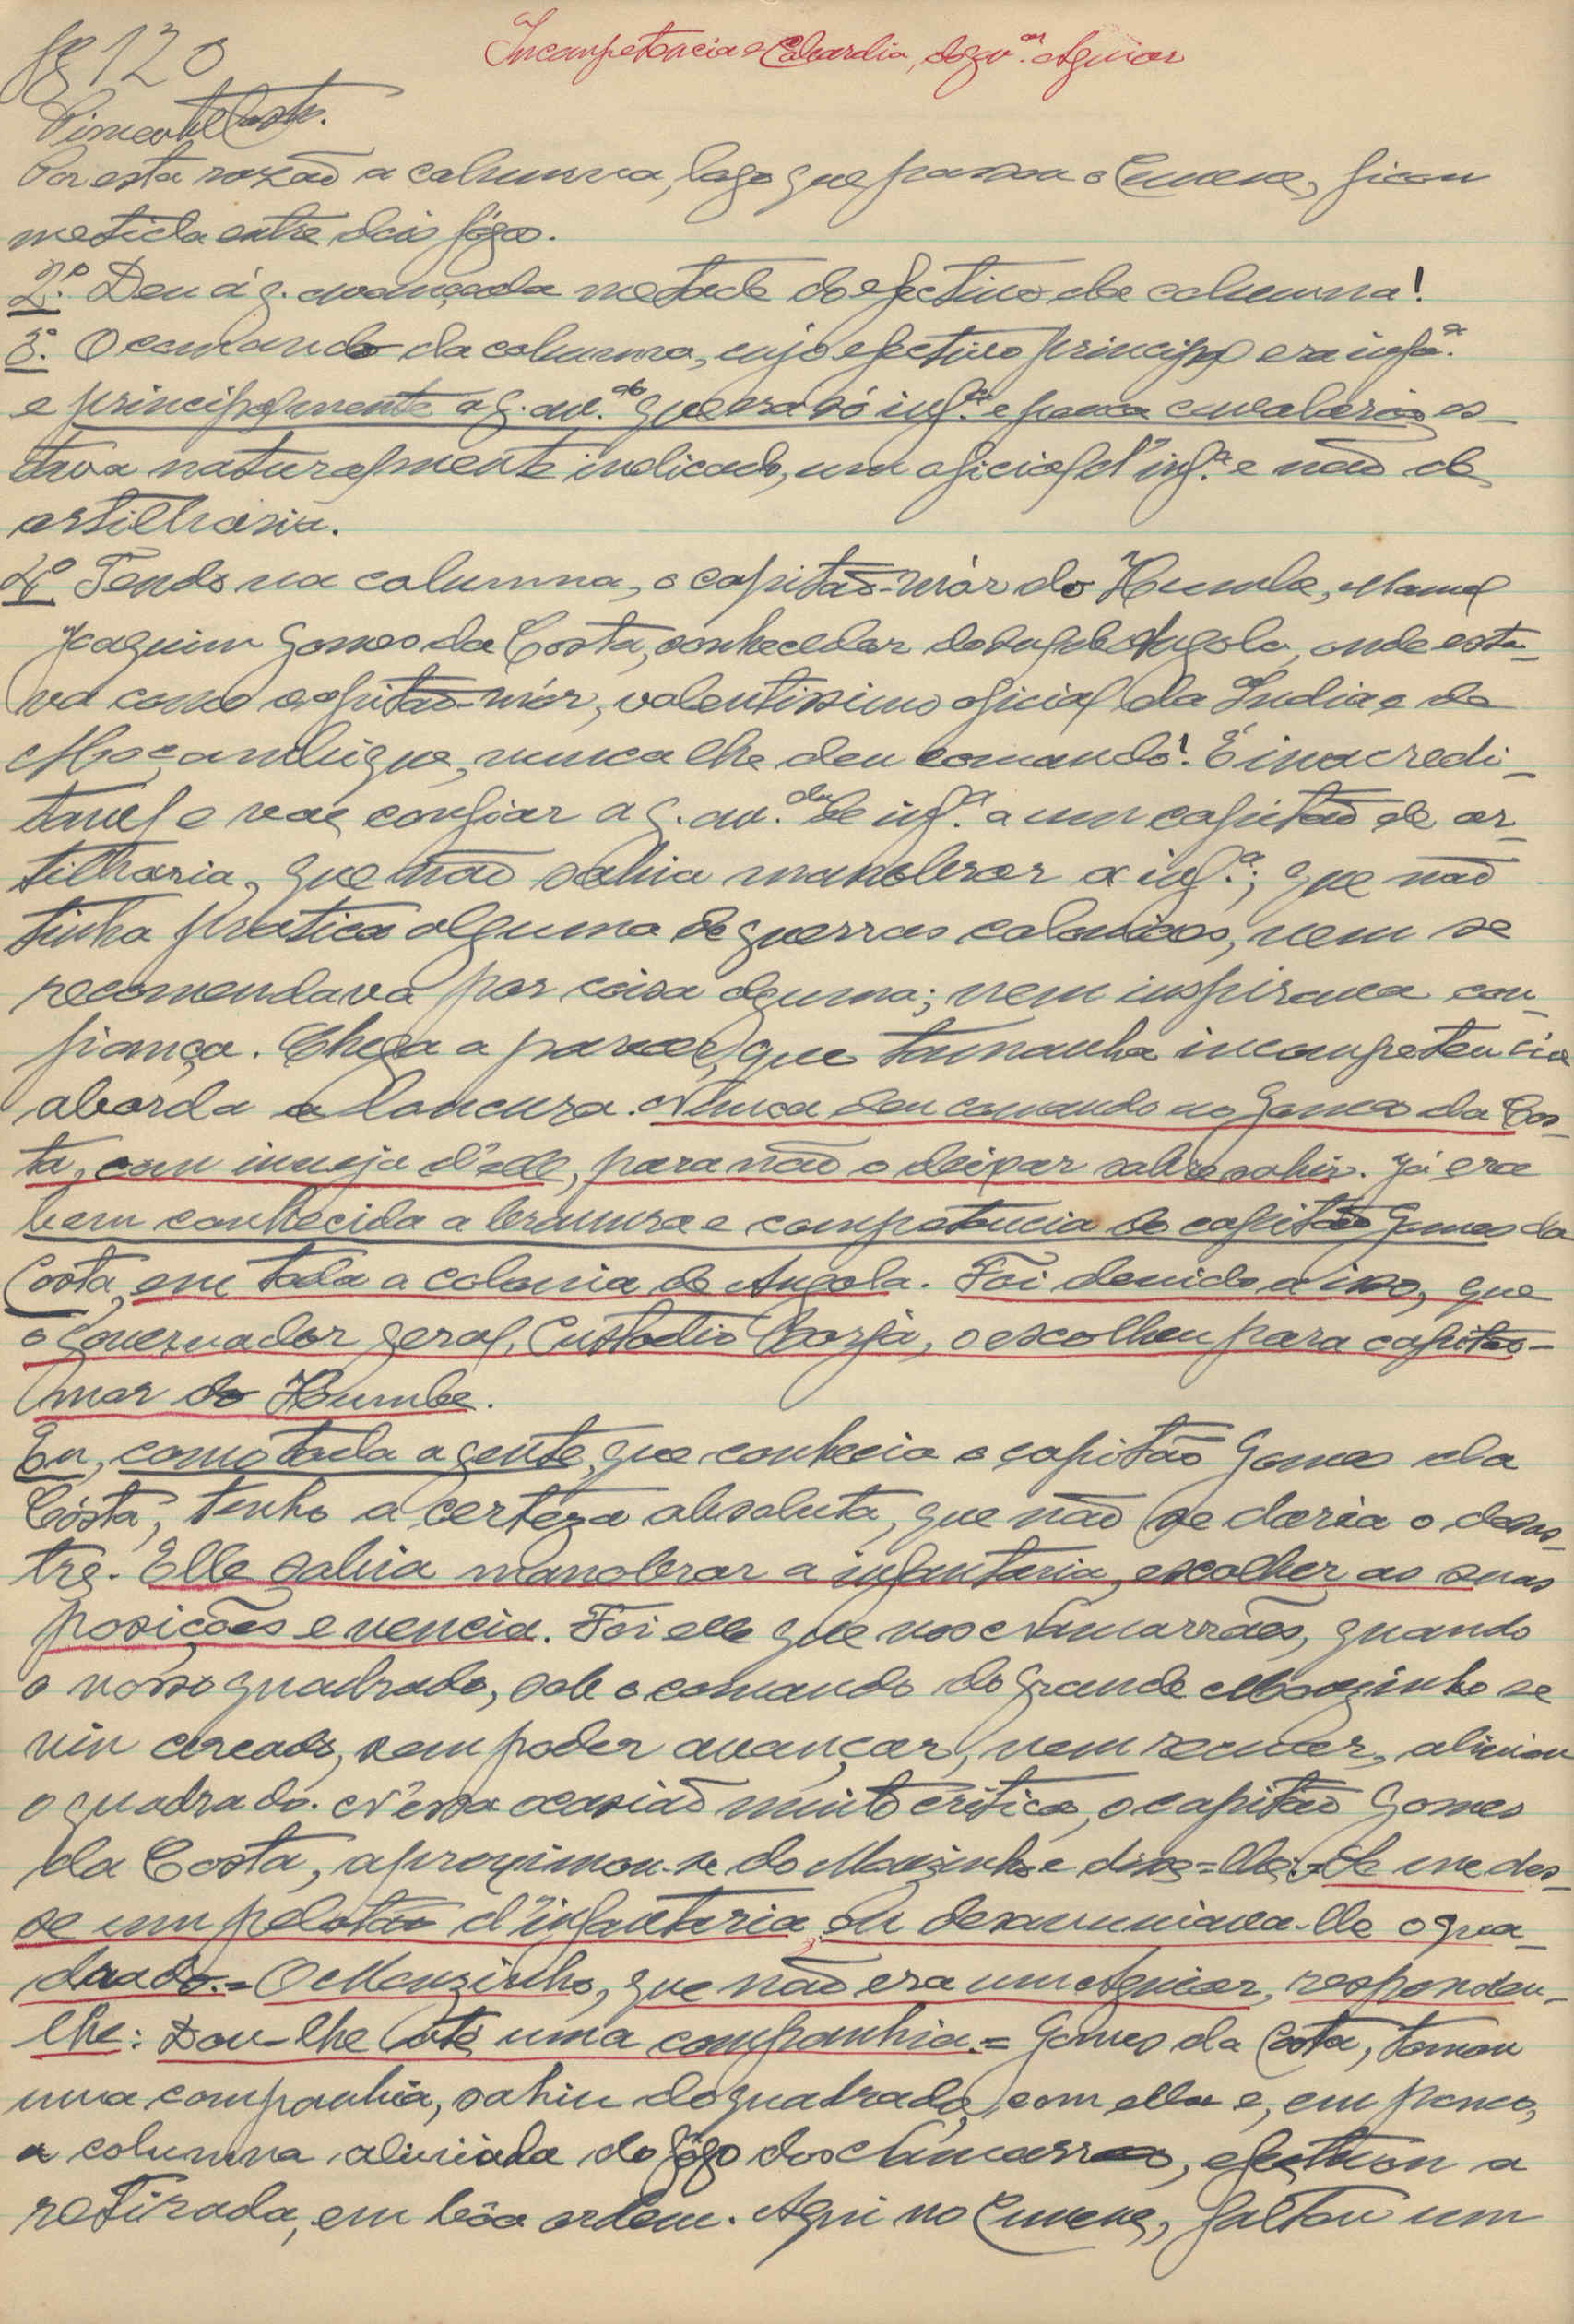 Incompetencia e Cobardia, do gov.or Aguiar
fg 120
Por esta razão a columna, logo que passou o Cunene, ficou
metida entre dois fógos.
2.º Deu á g. avançada metade do efectivo da columna!
3.º O comando da columna, cujo efectivo principal era inf.a
e principalmente a g. av.da que era só inf.a e pouca cavalaria es-
tava naturalmente indicado, um oficial d'inf.a e não de
artilharia.
4.º Tendo na columna, o capitão-mór do Humbe, Manuel
Joaquim Gomes da Costa, conhecedor do sul de Angola, onde esta-
va como capitão-mór, valentissimo oficial da India e de
Moçambique, nunca lhe deu comando! É inacredi-
tavel e vae confiar a g. av.da de inf.a a um capitão de ar-
tilharia, que não sabia manobrar a inf.a; que não
tinha pratica alguma de guerras coloniaes, nem se
recomendava por coisa alguma; nem inspirava con-
fiança. Chega a parecer, que tamanha incompetencia
aborda a loucura. Nunca deu comando ao Gomes da Cos-
ta, com inveja d'elle, para não o deixar sobresahir. Já era
bem conhecida a bravura e competencia do capitão Gomes da
Costa, em toda a colonia de Angola. Foi devido a isso, que
o governador geral, Custodio Borja, o escolheu para capitão-
mór do Humbe.
Eu, como toda a gente, que conhecia o capitão Gomes da
Costa, tenho a certeza absoluta, que não se daria o desas-
tre. Elle sabia manobrar a infantaria, escolher as suas
posições e vencia. Foi elle que nos Namarrães, quando
o nosso quadrado, sob o comando do grande Mouzinho se
viu cercado, sem poder avançar, nem recuar, aliviou
o quadrado. N'essa ocasião muito critica, o capitão Gomes
da Costa, aproximou-se do Mouzinho e disse-lhe: = Se me des-
se um pelotão d'infantaria, eu desanuviava-lhe o qua-
drado. = O Mouzinho, que não era um Aguiar, respondeu-
lhe: Dou-lhe até uma companhia. = Gomes da Costa, tomou
uma companhia, sahiu do quadrado, com ella e, em pouco,
a columna aliviada do fógo dos Namarraes, efectuou a
retirada, em bôa ordem. Aqui no Cunene, faltou um